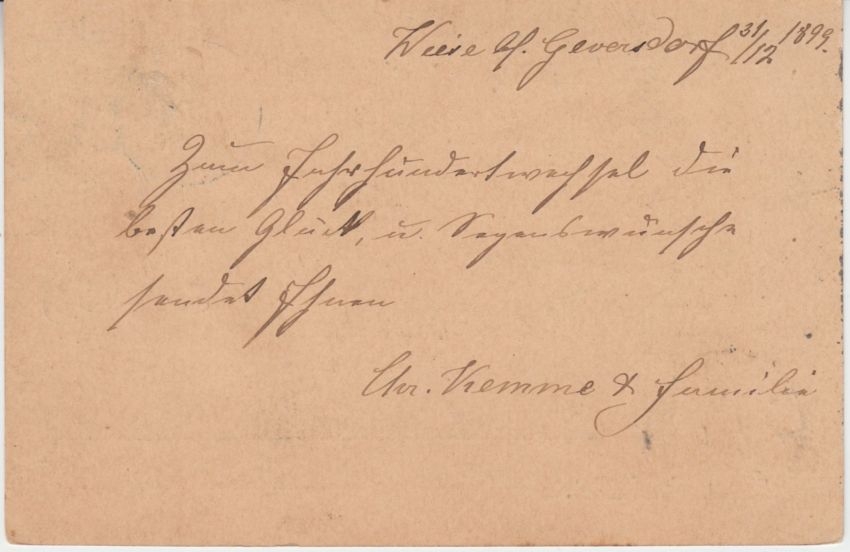 Wiese b/. Geversdorf 31/12 1899.
Zum Jahrhundertwechsel die
besten Glück, u. Segenswünsche
sendet Ihnen
Chr. Kemme & Familie